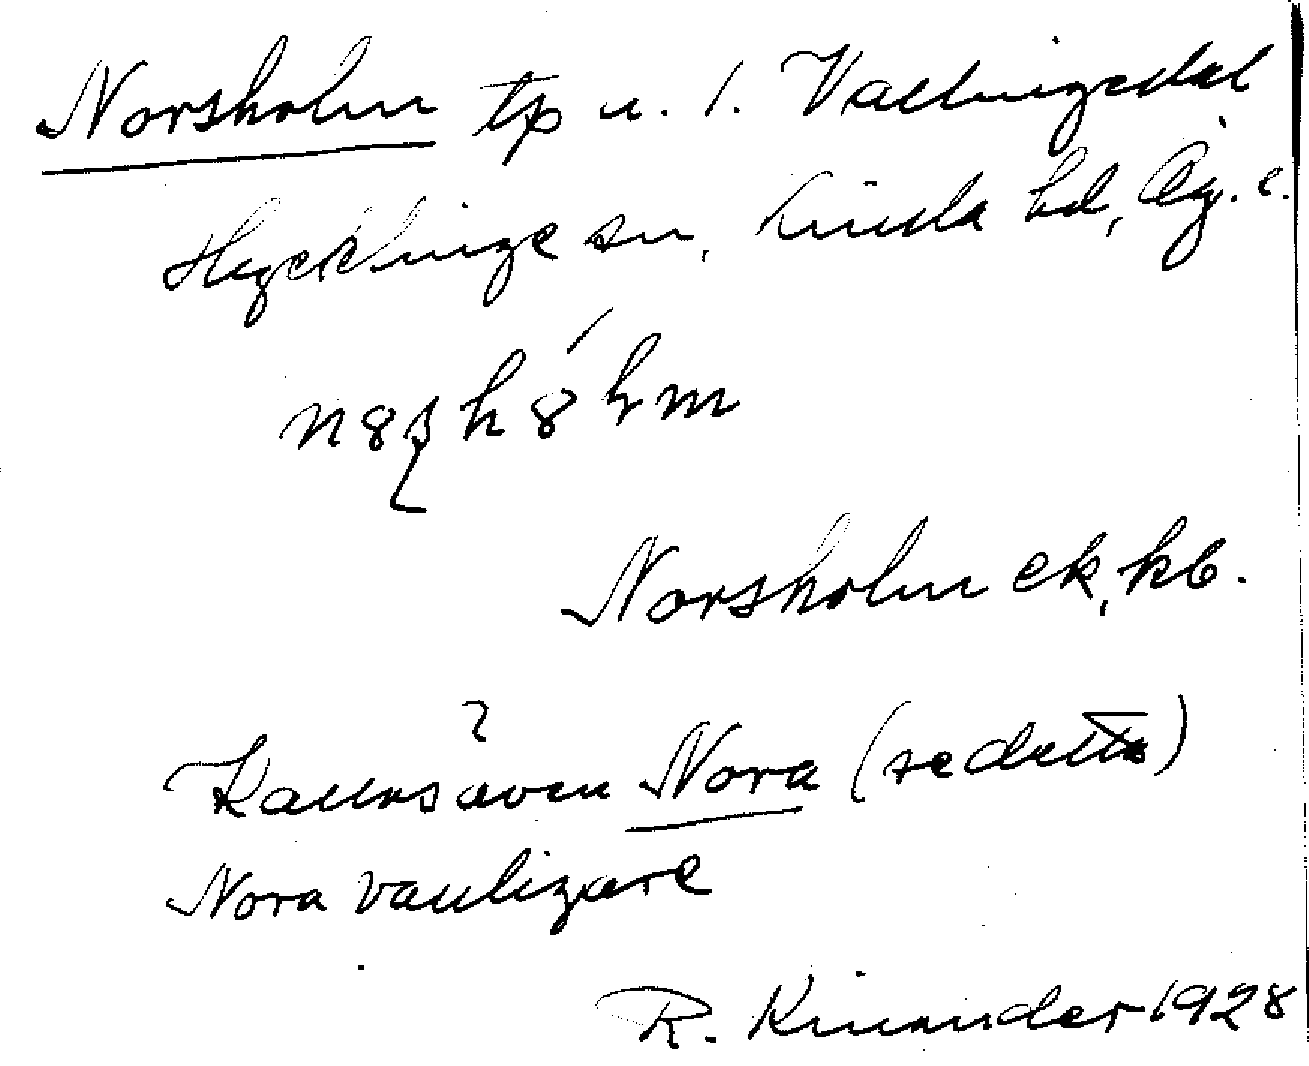 Norsholm tp u. l. Vallingedal
Hycklinge sn, Kinda hd, Ög. l.
Norsholm ek, kb.
Kallas även Nora (se detta)
Nora vanligare
R. Kinander 1928